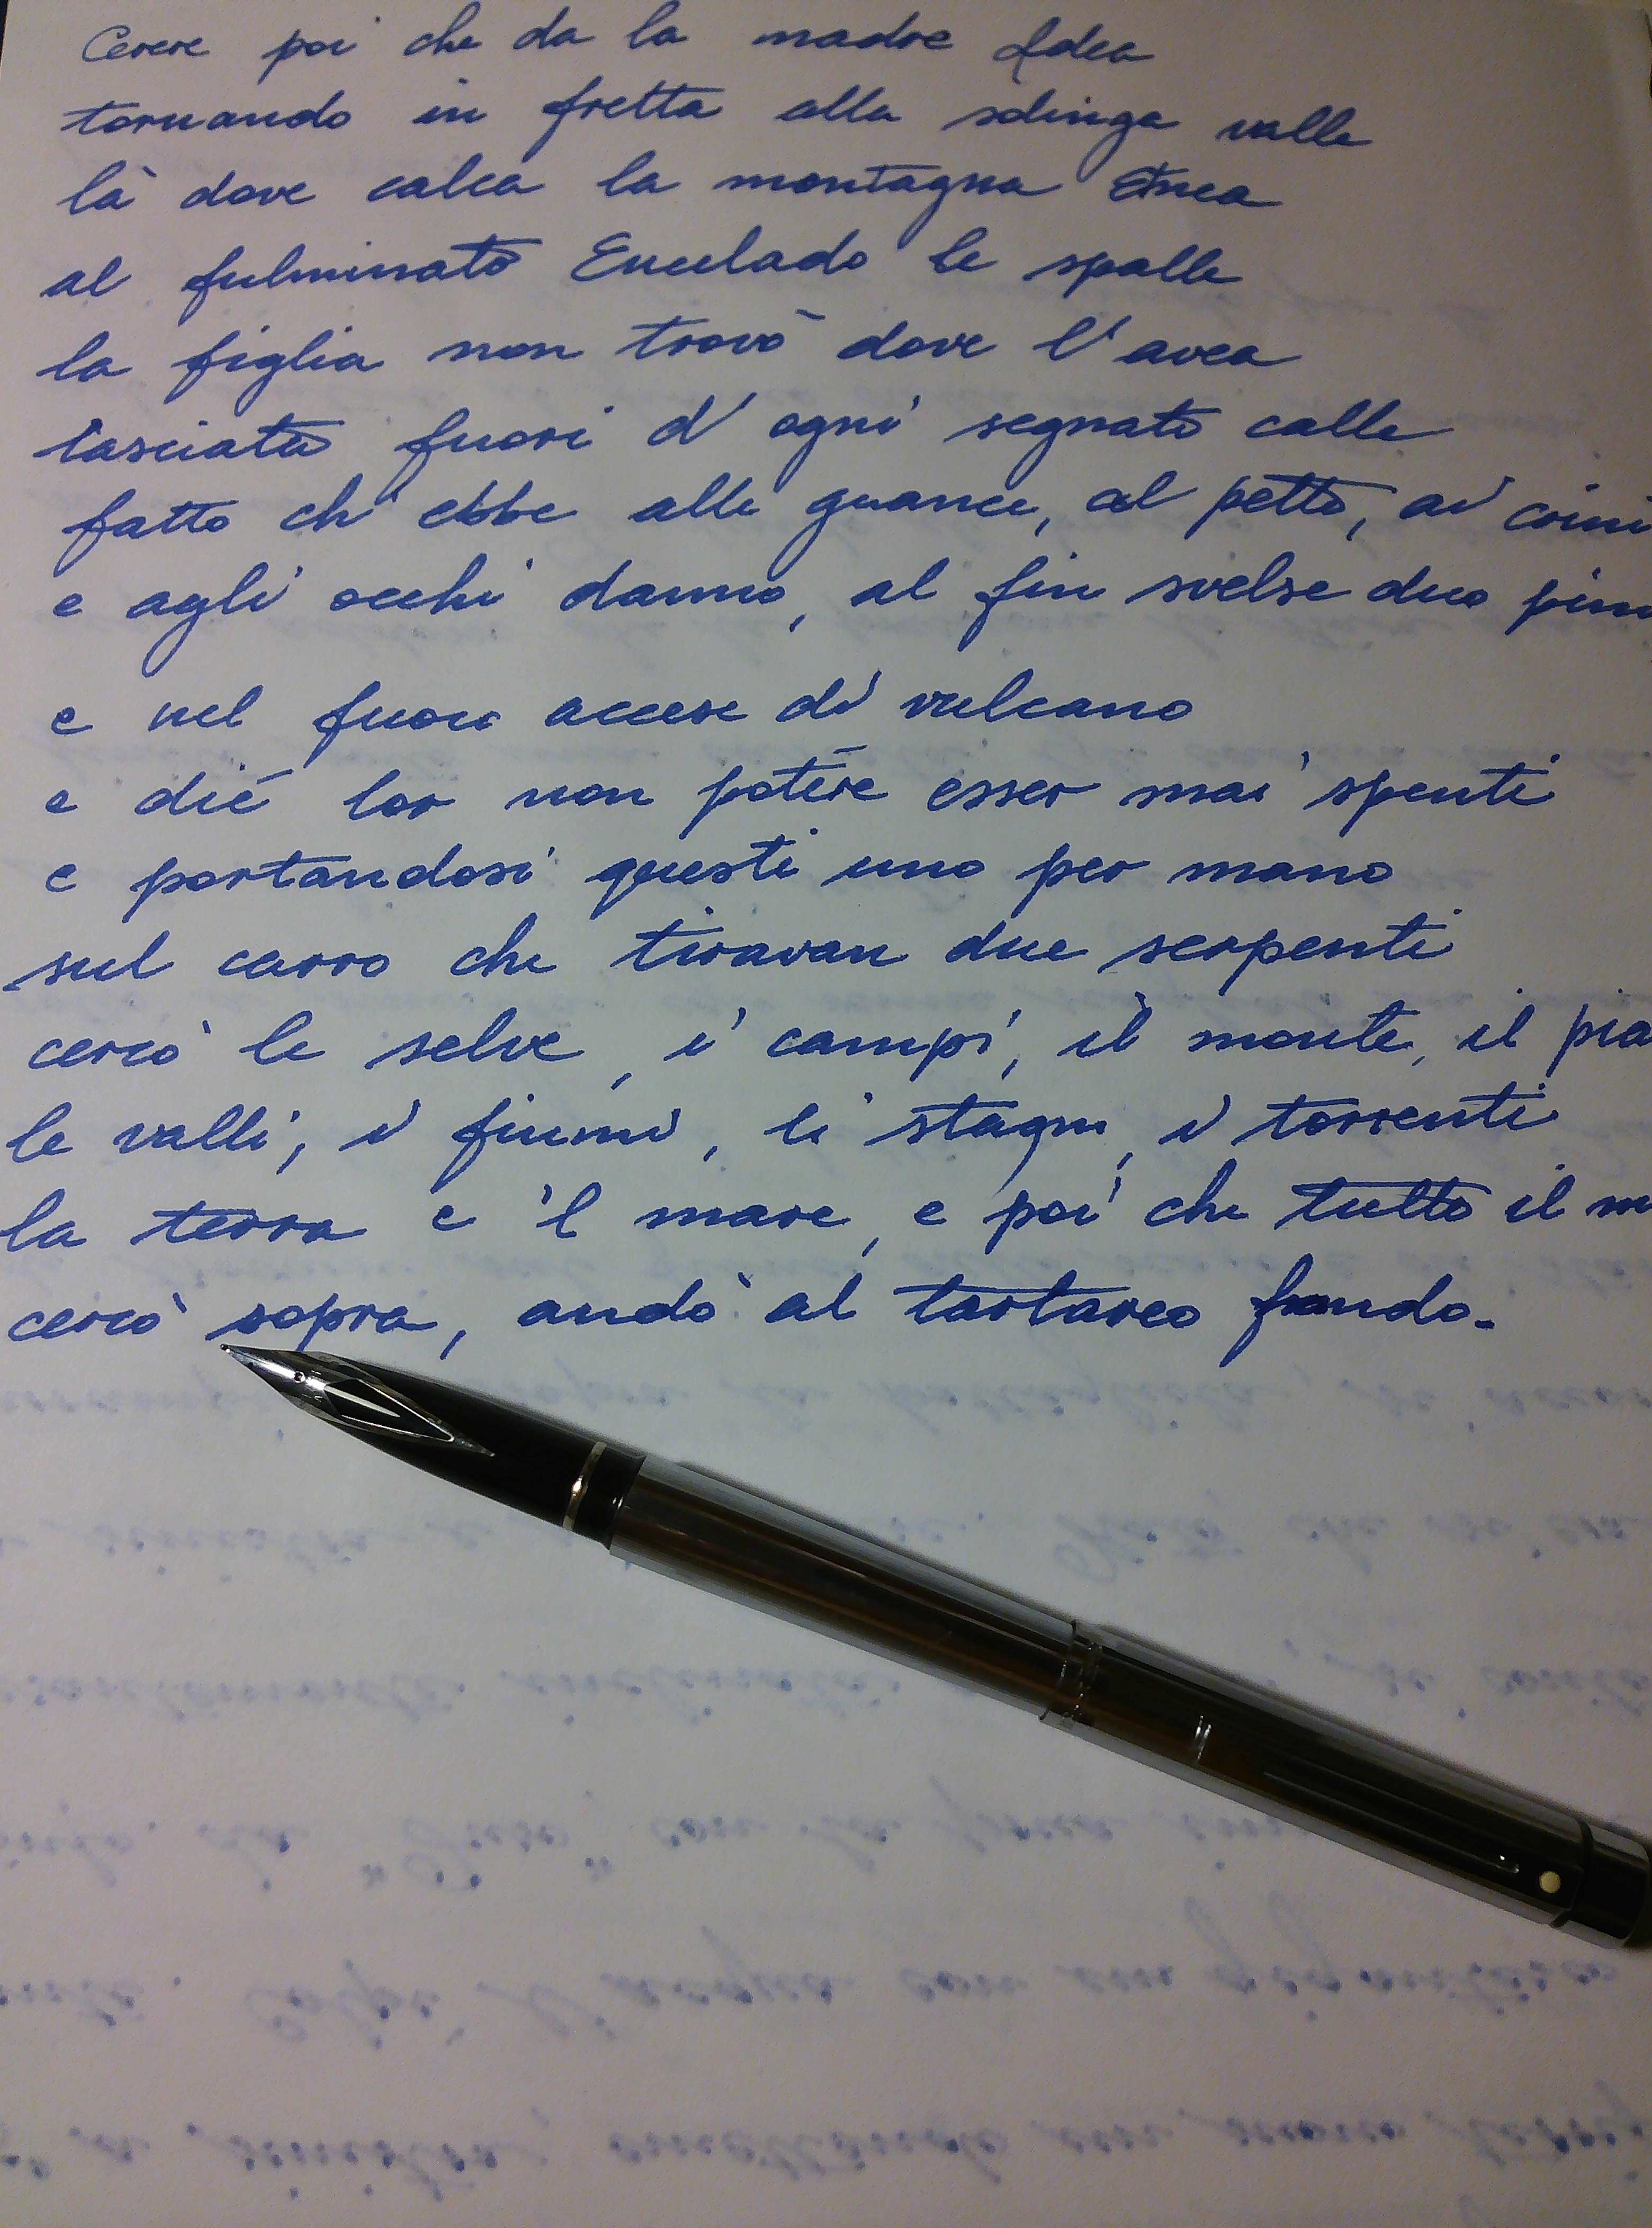 Cerere poi che da la madre Idea
tornando in fretta alla solinga valle
là dove calca la montagna Etnea
al fulminato Encelado le spalle
la figlia non trovò dove l'avea
lasciata fuori d'ogni segnato calle
fatto ch'ebbe alle guance, al petto, ai crini
e agli occhi danno, al fin svelse duo pini
e nel fuoco accese di vulcano
e dié lor non potere esser mai spenti
e portandosi questi uno per mano
sul carro che tiravan due serpenti
cercò le selve, i campi, il monte, il pia
le valli, i fiumi, li stagni, i torrenti
la terra e 'l mare, e poi che tutto il m
cercò sopra, andò al tartareo fondo.